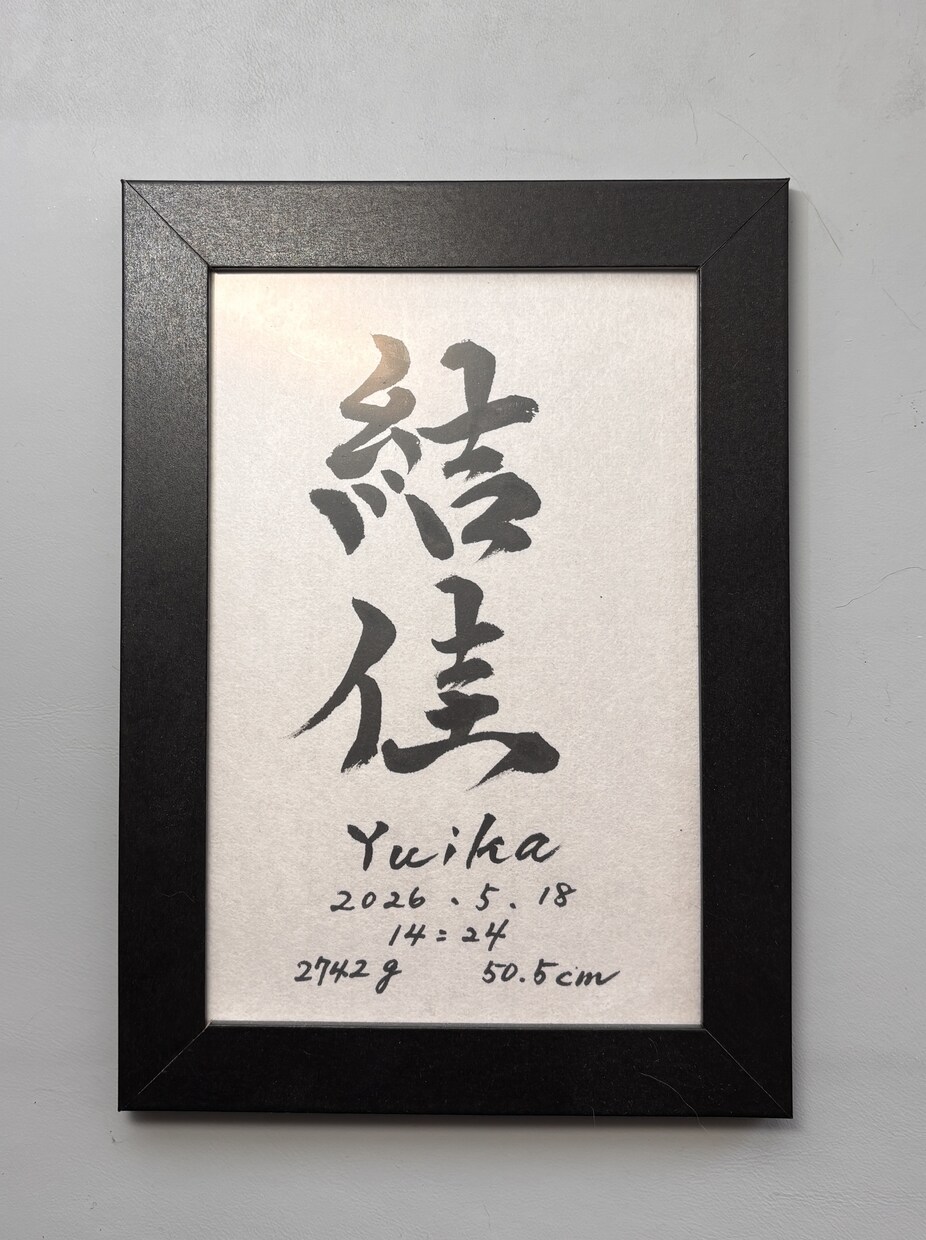 結佳
Yuika
2026.5.18
14:24
2742g 50.5cm